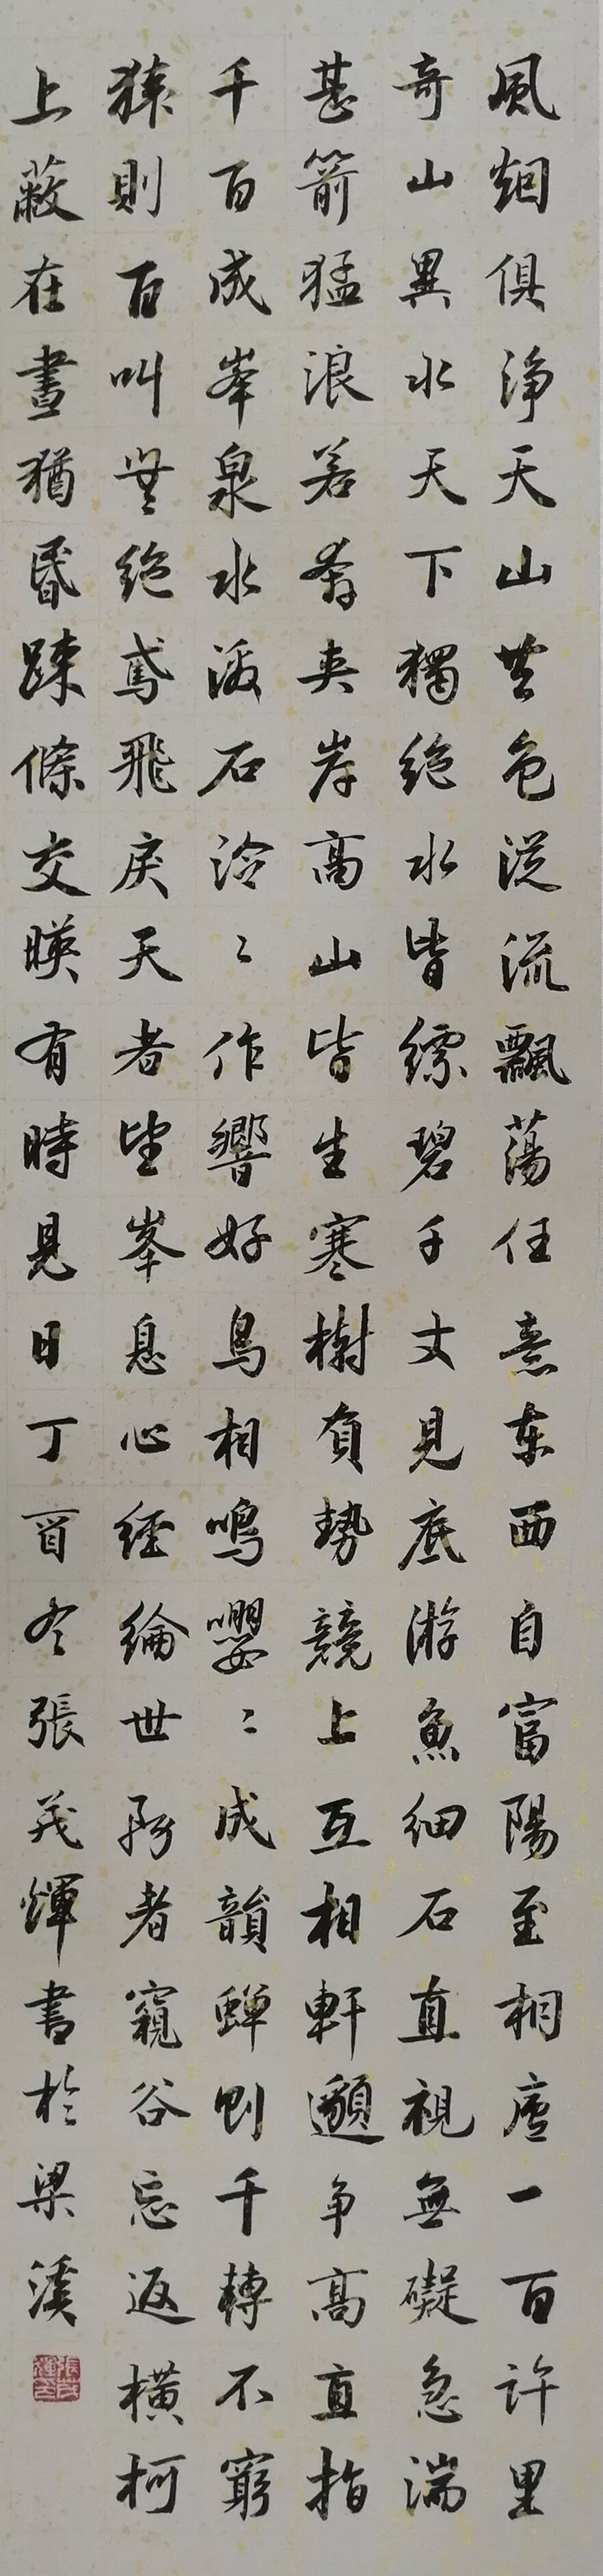 風烟俱淨天山共色從流飄蕩任意東西自富陽至桐廬一百許里
奇山異水天下獨絶水皆縹碧千丈見底游魚細石直視無礙急湍
甚箭猛浪若奔夾岸高山皆生寒樹負勢競上互相軒邈争高直指
千百成峯泉水激石泠〻作響好鳥相鳴嚶〻成韻蟬則千轉不窮
猿則百叫無絶鳶飛戾天者望峯息心經綸世務者窺谷忘返橫柯
上蔽在晝猶昏疎條交暎有時見日丁酉冬張茂輝書於梁溪
張茂輝印